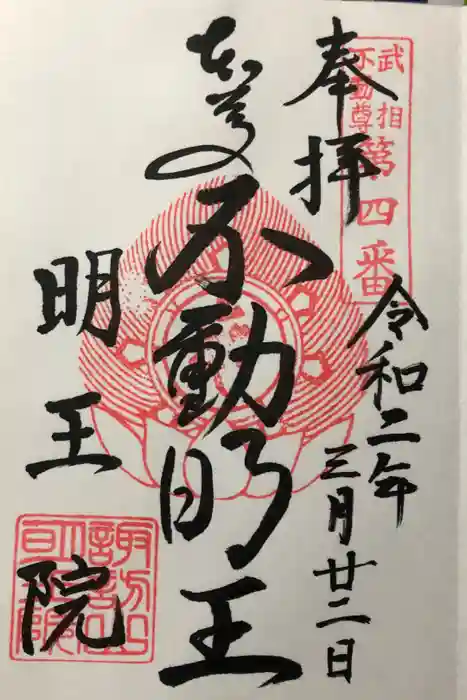 武相
不動尊
第四番
奉拝
令和二年
三月廿二日
不動明王
明王院